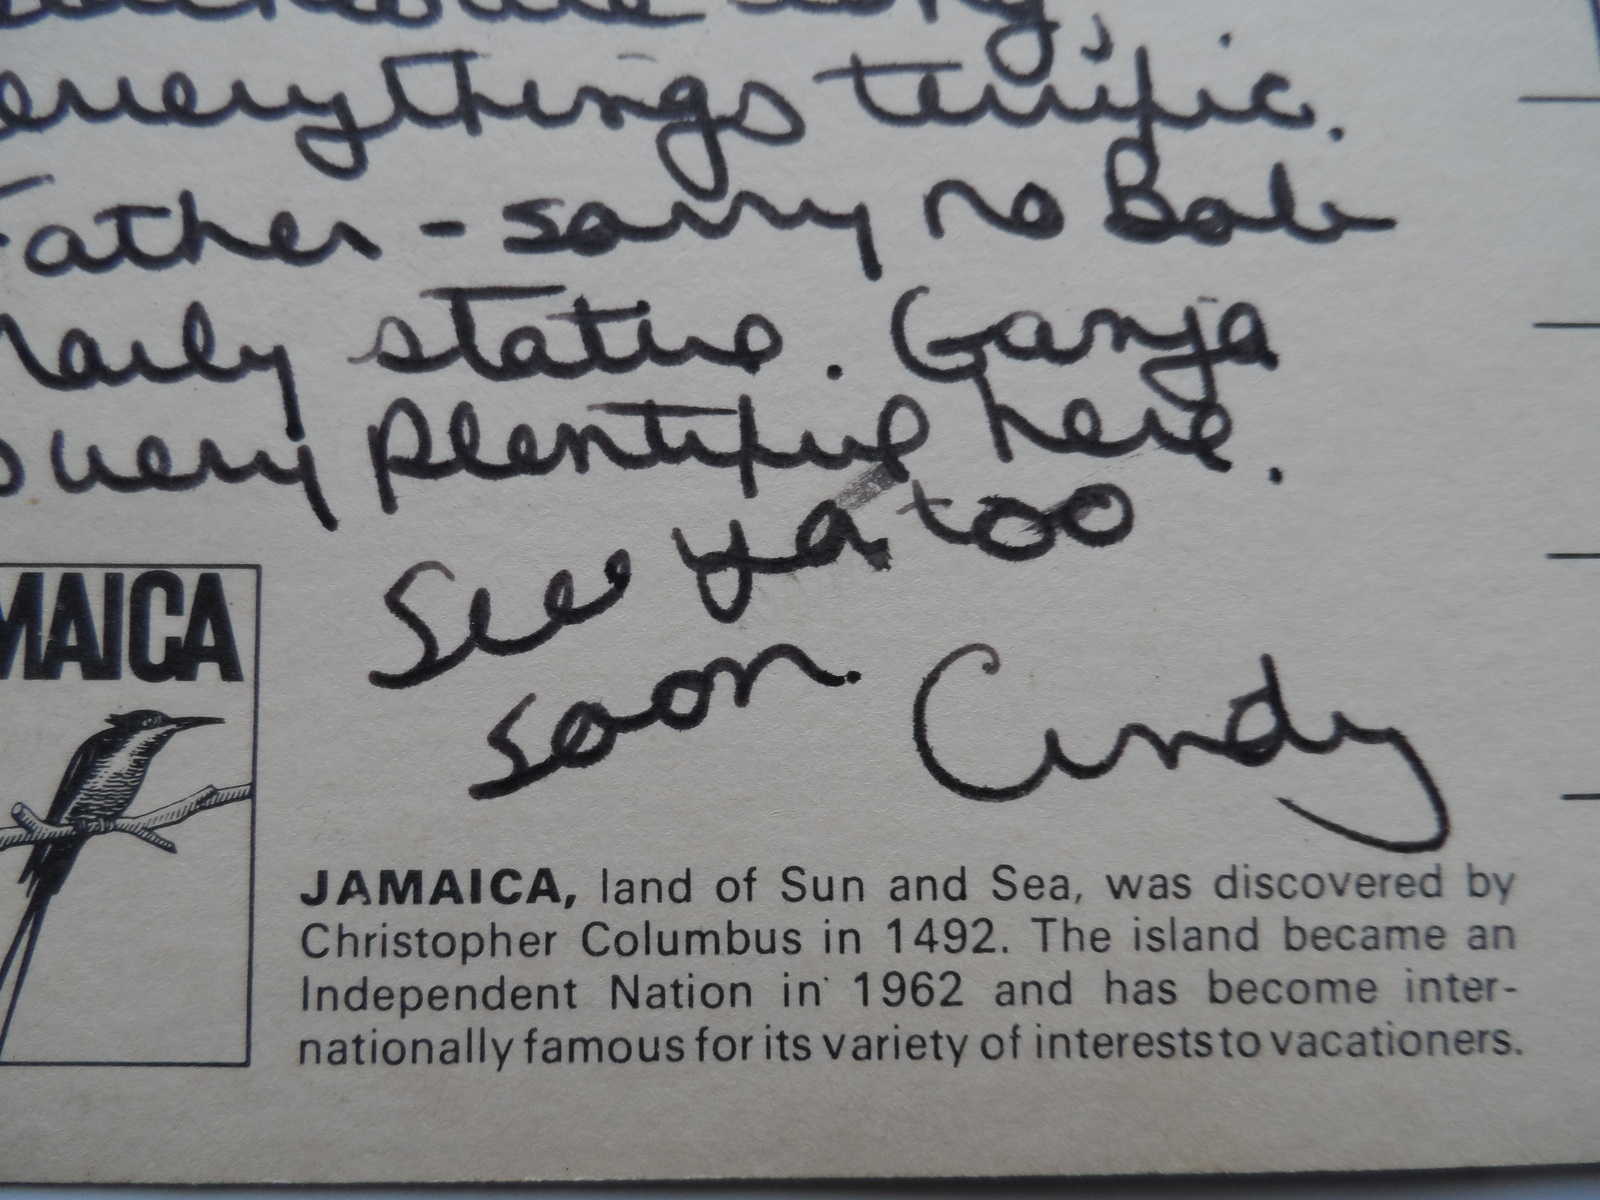 everythings terrific.
Father - sorry no Bob
Marley statue. Ganja
very plentiful here.
See ya too
soon. Cindy
MAICA
JAMAICA, land of Sun and Sea, was discovered by
Christopher Columbus in 1492. The island became an
Independent Nation in 1962 and has become inter-
nationally famous for its variety of interests to vacationers.